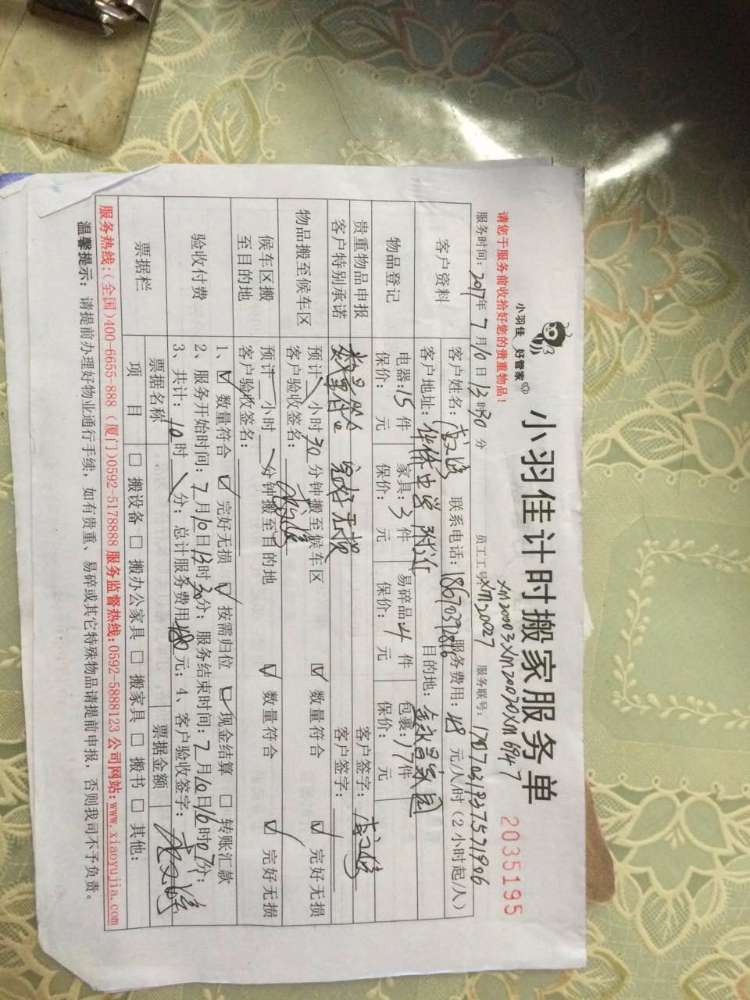 小羽佳 好管家
小羽佳计时搬家服务单
2035195
请您于服务前收拾好您的贵重物品！
XM20003 XM20070 XM6947
服务时间：2017年7月10日13时30分 员工工号：XM20027 服务联号：
客户资料
客户姓名： 联系电话： 服务费用：48元/人/时（2小时起/人）
客户地址： 附近 目的地：
物品登记
电器：15件 家具：3件 易碎品：4件 包裹：17件
保价： 元 保价： 元 保价： 元 保价： 元
贵重物品申报
客户特别承诺
数量符合 完好无损 客户签字：
物品搬至候车区
预计 小时30分钟搬至候车区 ☑ 数量符合 ☑ 完好无损
客户验收签名：
候车区搬
至目的地
预计 小时 分钟搬至目的地 ☑ 数量符合 ☑ 完好无损
客户验收签名：
验收付费
1、☑ 数量符合 ☑ 完好无损 ☑ 按需归位 ☑ 现金结算 □ 转账汇款
2、服务开始时间：7月10日13时30分；服务结束时间：7月10日16时07分；
3、共计：10时 分；总计服务费用：480元；4、客户验收签字：
票据栏
票据名称 票据金额
项目 □ 搬设备 □ 搬办公家具 □ 搬家具 □ 搬书 □ 其他：
服务热线：(全国)400-6655-888 (厦门)0592-5178888 服务监督热线：0592-5888123 公司网站：www.xiaoyujia.com
温馨提示：请提前办理好物业通行手续，如有贵重、易碎或其它特殊物品请提前申报，否则我司不予负责。